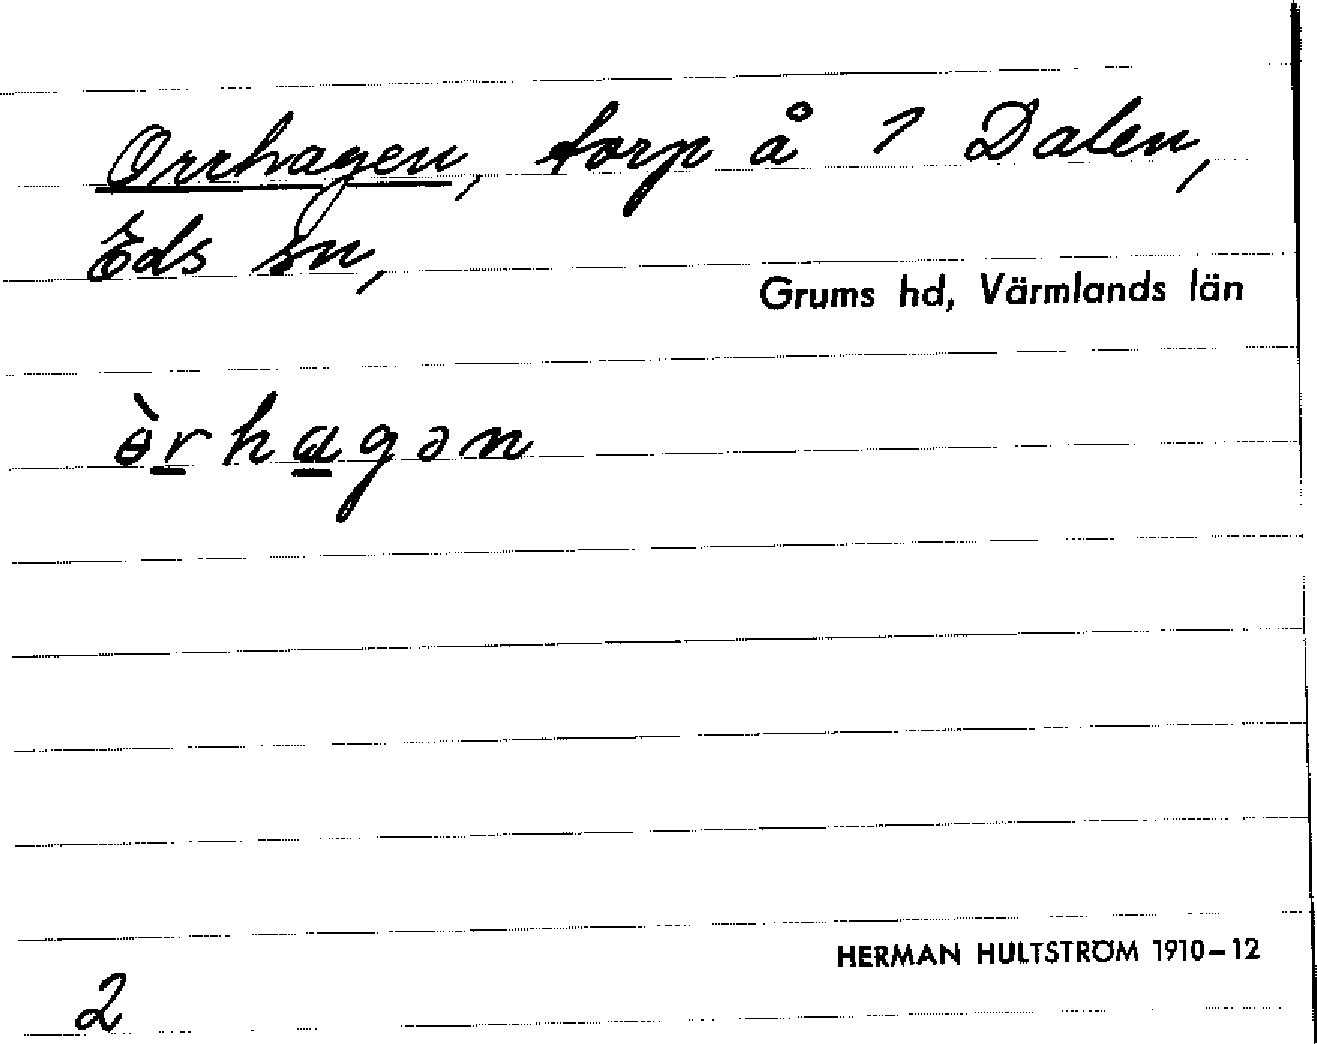 Orrhagen, torp å 1 Dalen,
Eds sn,
Grums hd, Värmlands län
ɵ̀rhagən
HERMAN HULTSTRÖM 1910–12
2